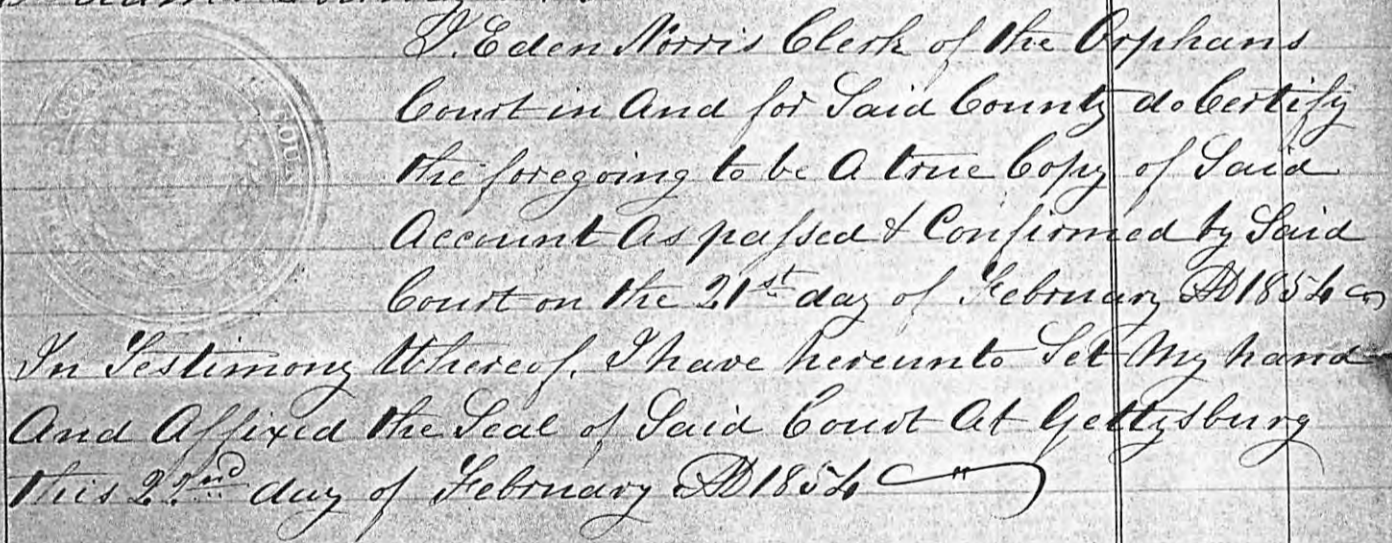 Adams County
I. Eden Norris Clerk of the Orphans
Court in And for Said County do Certify
the foregoing to be A true Copy of Said
Account As passed & Confirmed by Said
Court on the 21st day of February AD 1854
In Testimony Whereof, I have hereunto Set My hand
And Affixed the Seal of Said Court At Gettysburg
this 22nd day of February AD 1854